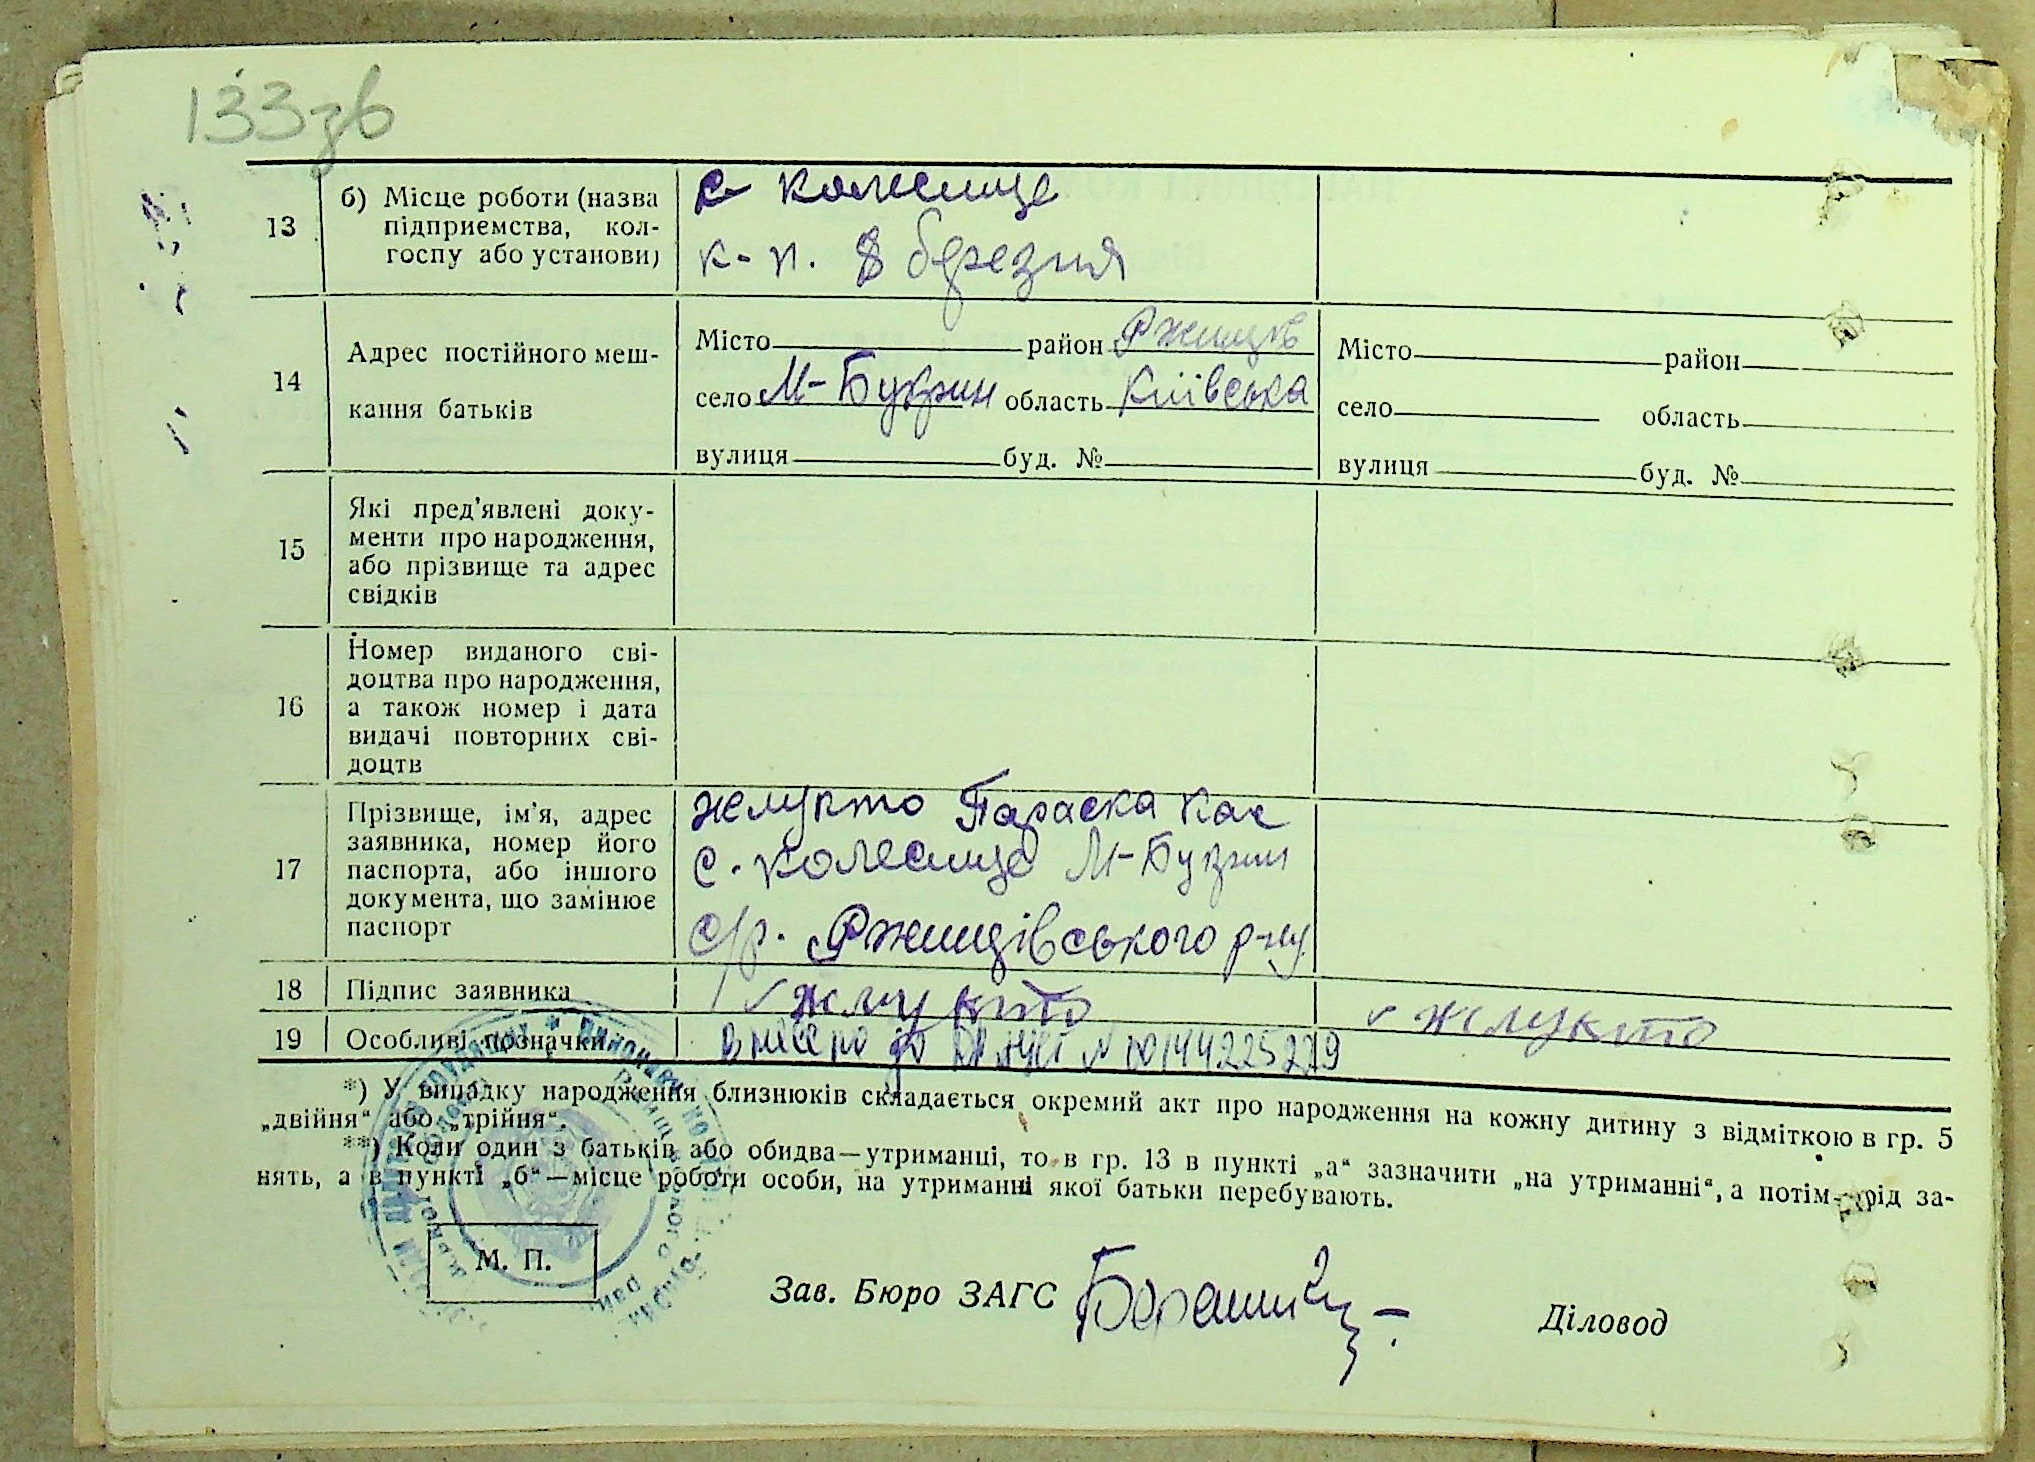 133зв
13
б) Місце роботи (назва
підприємства, кол-
госпу або установи)
с. Колесище
к-п. 8 березня
14
Адрес постійного меш-
кання батьків
Місто район Ржищів
село М-Букрин область Київська
вулиця буд. №
Місто район
село область
вулиця буд. №
15
Які пред'явлені доку-
менти про народження,
або прізвище та адрес
свідків
16
Номер виданого сві-
доцтва про народження,
а також номер і дата
видачі повторних сві-
доцтв
17
Прізвище, ім'я, адрес
заявника, номер його
паспорта, або іншого
документа, що замінює
паспорт
Желукто Параска Кас
с. Колесище М-Букрин
с/р. Ржищівського р-ну.
18
Підпис заявника
Желукто
Желукто
19
Особливі позначки
внесено до № 00144225279
*) У випадку народження близнюків складається окремий акт про народження на кожну дитину з відміткою в гр. 5
„двійня“ або „трійня“.
**) Коли один з батьків або обидва—утриманці, то в гр. 13 в пункті „а“ зазначити „на утриманні“, а потім—рід за-
нять, а в пункті „б“—місце роботи особи, на утриманні якої батьки перебувають.
М. П.
Зав. Бюро ЗАГС
Діловод